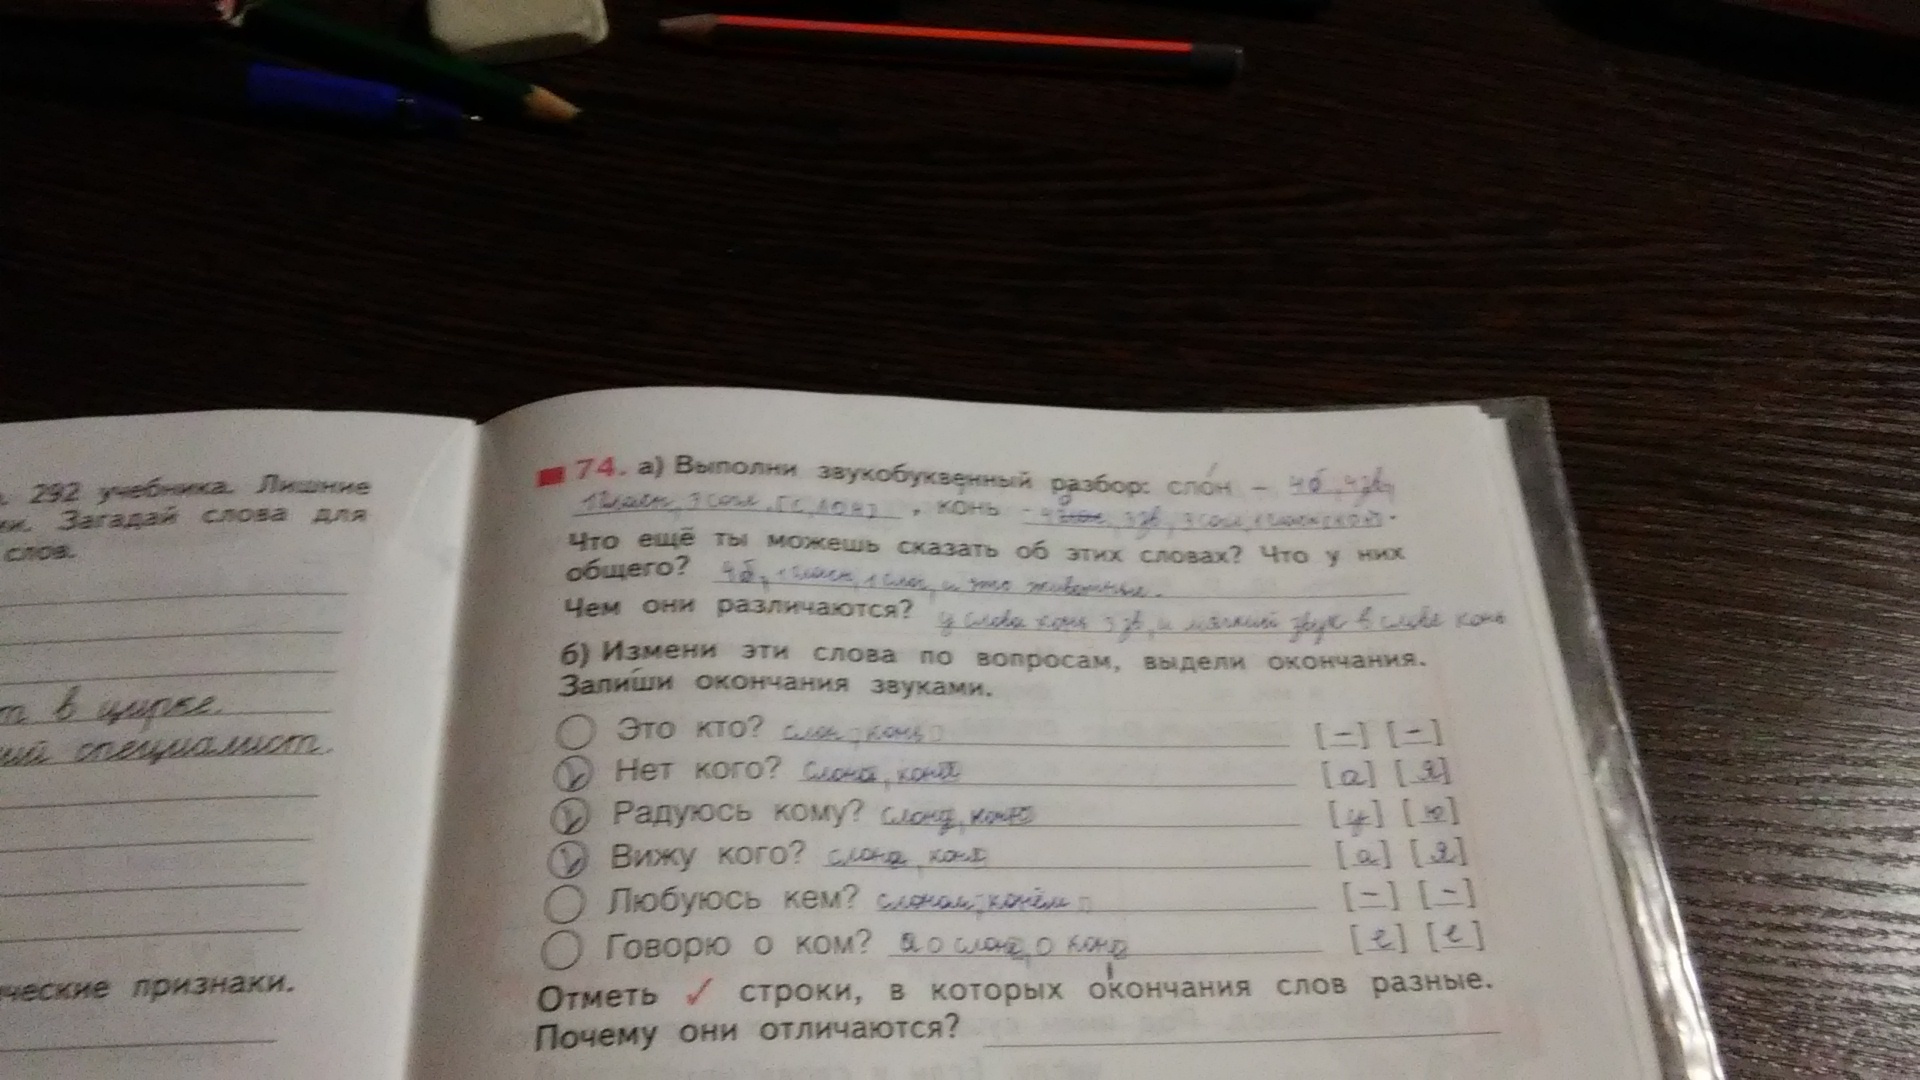 292 учебника. Лишние
Загадай слова для
слов.
т в цирке.
специалист.
ческие признаки.
74. а) Выполни звукобуквенный разбор: слóн – 4б, 4зв,
, конь -
Что ещё ты можешь сказать об этих словах? Что у них
общего? 4б, 1 гласн, 1 слог, и это животные.
Чем они различаются? у слова конь 3 зв, и мягкий звук в слове конь
б) Измени эти слова по вопросам, выдели окончания.
Запиши окончания звуками.
Это кто? слон, конь [-] [-]
Нет кого? слона, коня [а] [я]
Радуюсь кому? слону, коню [у] [ю]
Вижу кого? слона, коня [а] [я]
Любуюсь кем? слоном, конём [-] [-]
Говорю о ком? о слоне, о коне [е] [е]
Отметь ✓ строки, в которых окончания слов разные.
Почему они отличаются?